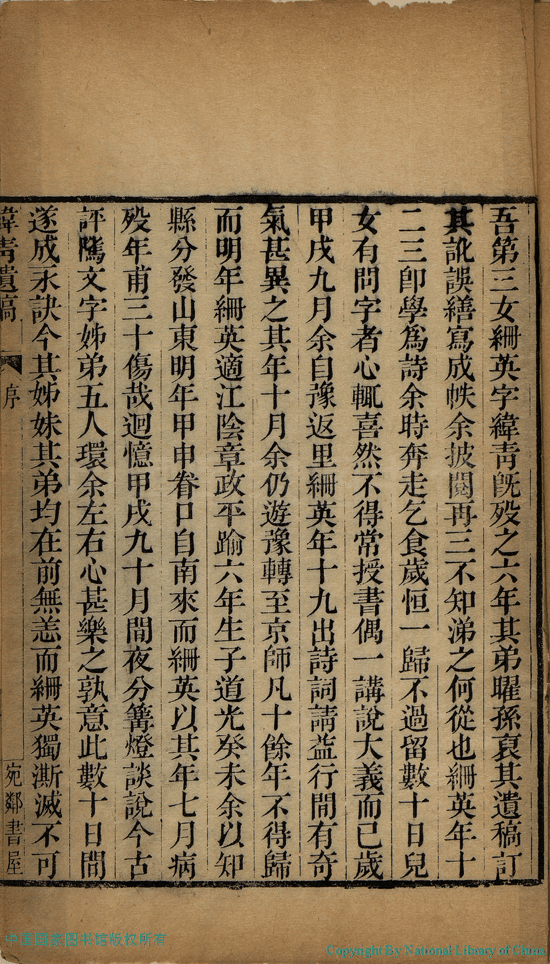 吾第三女䌟英字緯青旣殁之六年其弟曜孫裒其遺稿訂
其訛誤繕寫成帙余披閱再三不知涕之何從也䌟英年十
二三卽學爲詩余時奔走乞食歲恒一歸不過留數十日兒
女有問字者心輒喜然不得常授書偶一講說大義而已歲
甲戌九月余自豫返里䌟英年十九出詩詞請益行間有奇
氣甚異之其年十月余仍遊豫轉至京師凡十餘年不得歸
而明年䌟英適江陰章政平踰六年生子道光癸未余以知
縣分發山東明年甲申眷口自南來而䌟英以其年七月病
殁年甫三十傷哉迴憶甲戌九十月間夜分篝燈談說今古
評隲文字姊弟五人環余左右心甚樂之孰意此數十日間
遂成永訣今其姊妹其弟均在前無恙而䌟英獨澌滅不可
緯青遺稿
序
宛鄰書屋
中国国家图书馆版权所有
Copyright By National Library of China